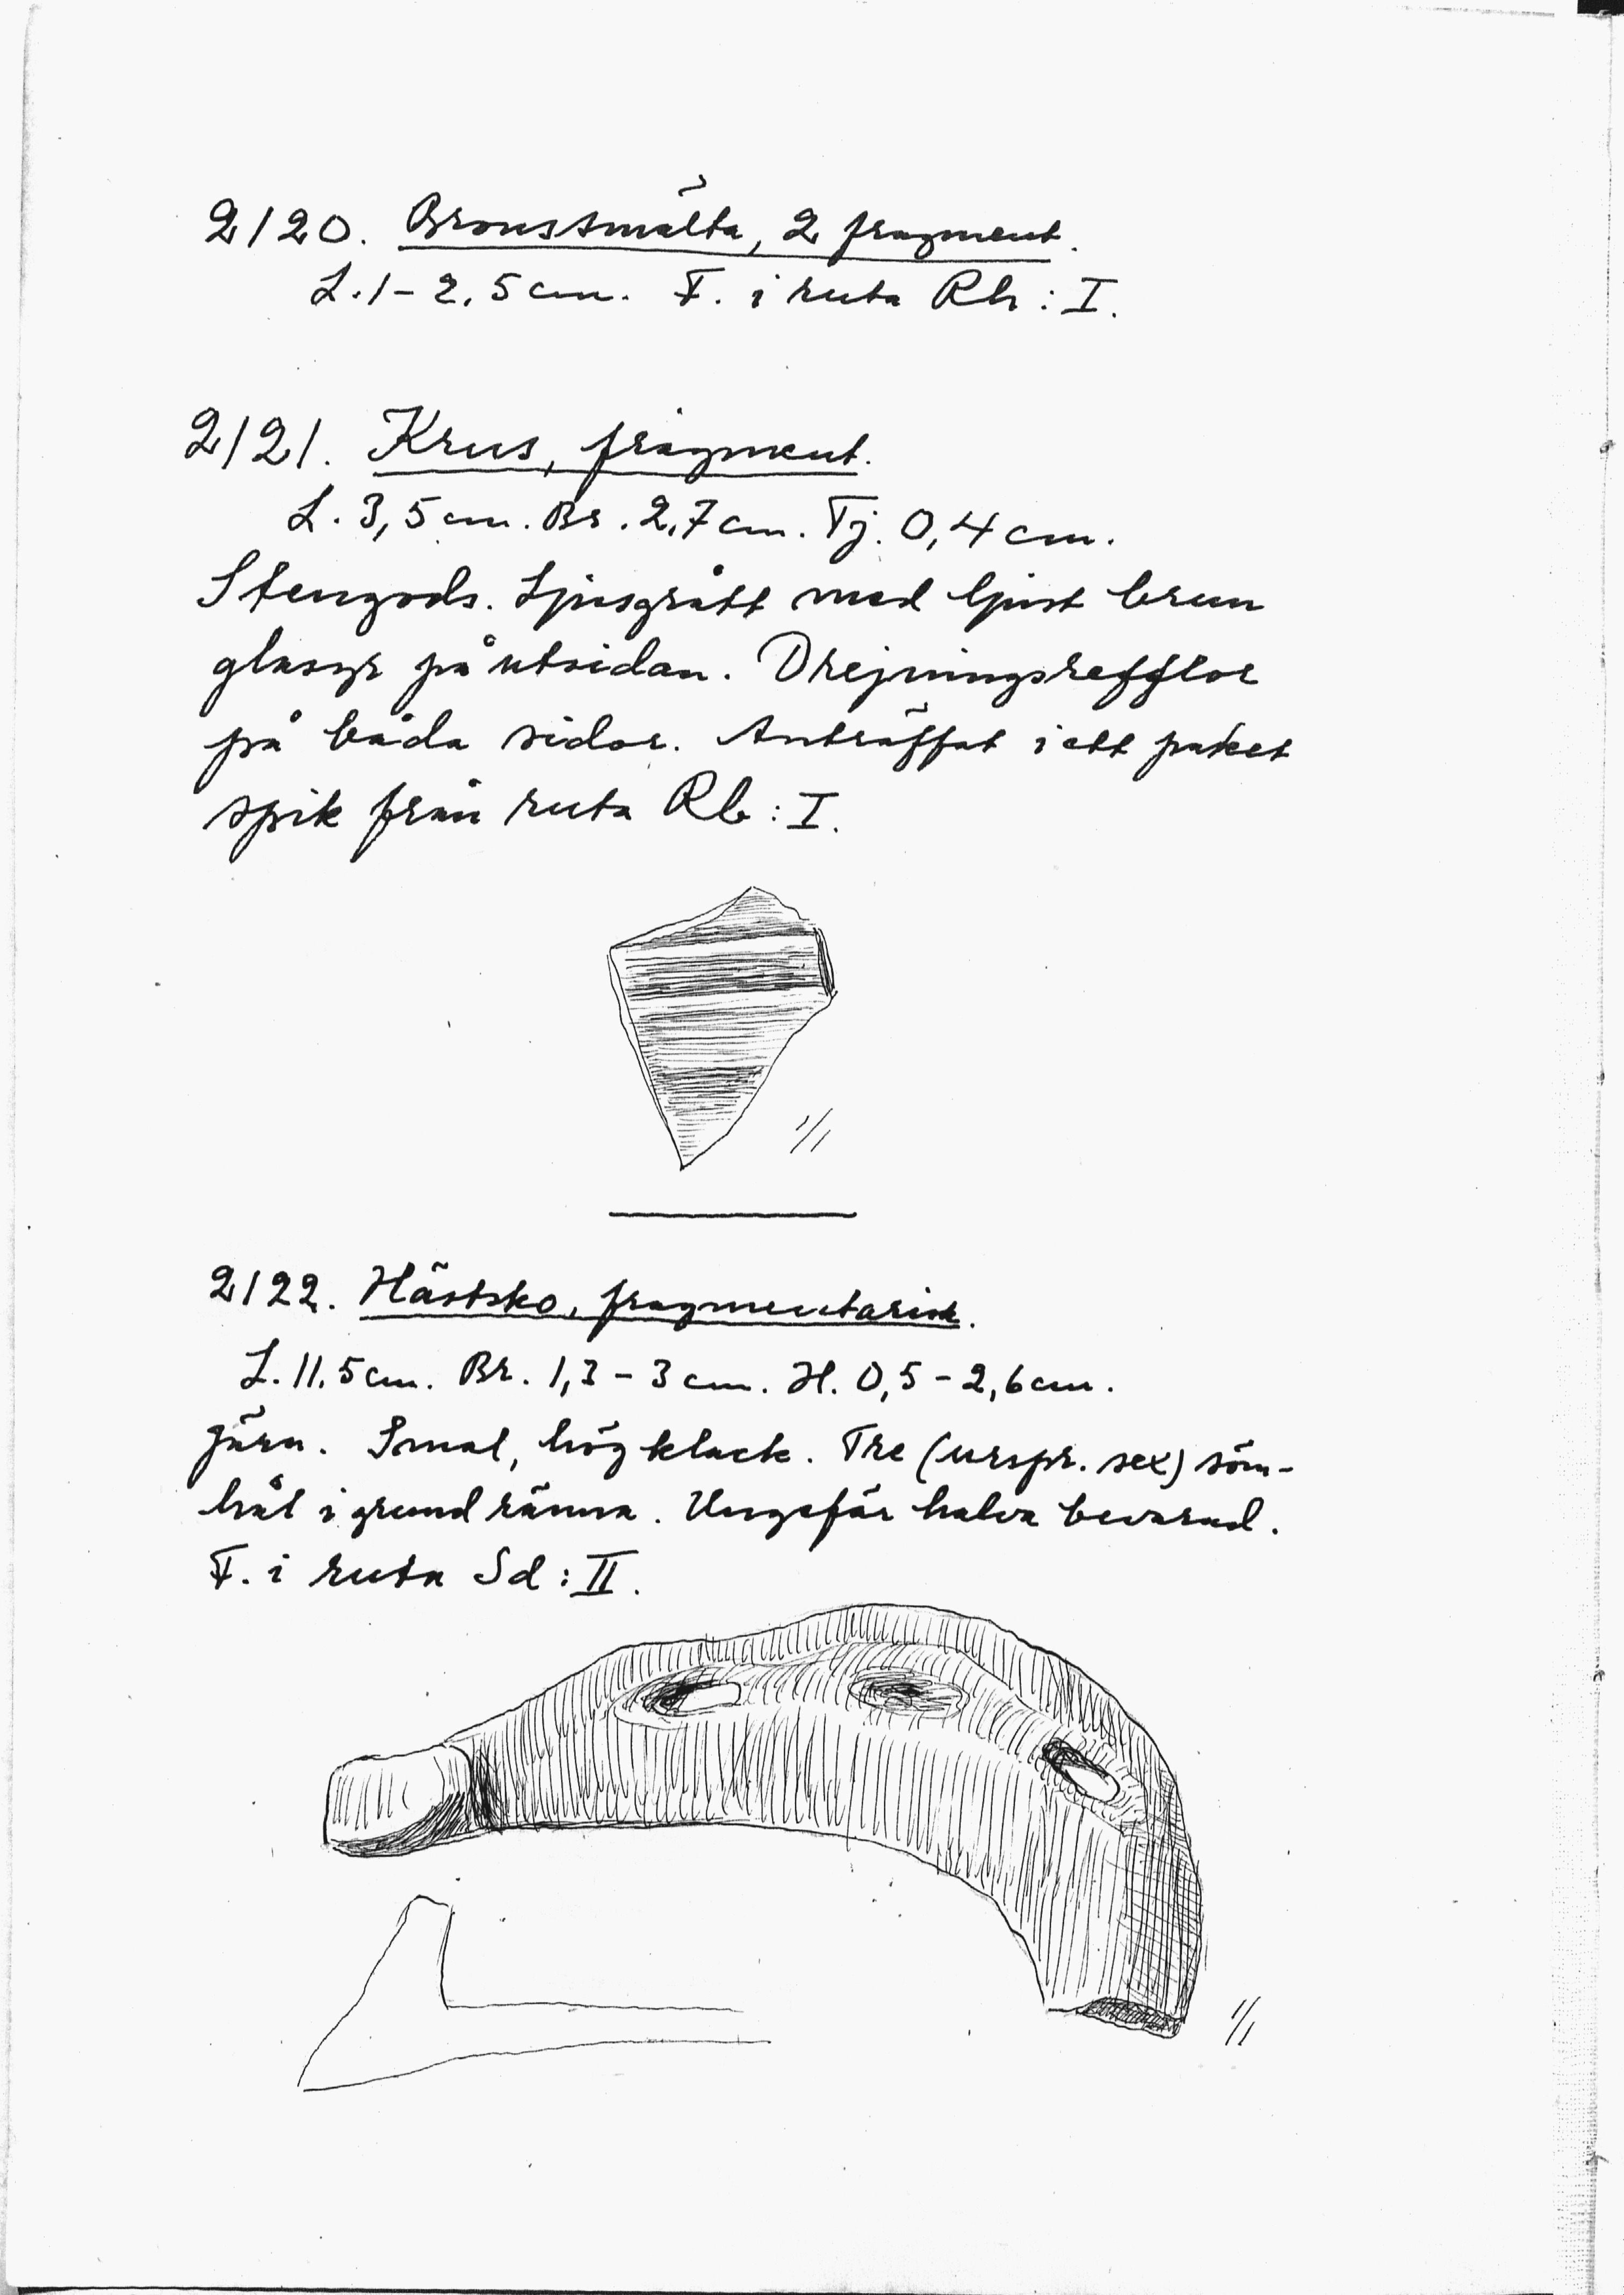 2120. Bronssmälta, 2 fragment.
L. 1-2,5 cm. F. i ruta Rh: I.
2121. Krus, fragment.
L. 3,5 cm. Br. 2,7 cm. Tj. 0,4 cm.
Stengods. Ljusgrått med ljust brun
glasyr på utsidan. Drejningsrefflor
på båda sidor. Anträffat i ett paket
spik från ruta Rb: I.
1/1
2122. Hästsko, fragmentarisk.
L. 11,5 cm. Br. 1,3-3 cm. H. 0,5-2,6 cm.
Järn. Smal, hög klack. Tre (urspr. sex) söm-
hål i grund ränna. Ungefär halva bevarad.
F. i ruta Sd: II.
1/1